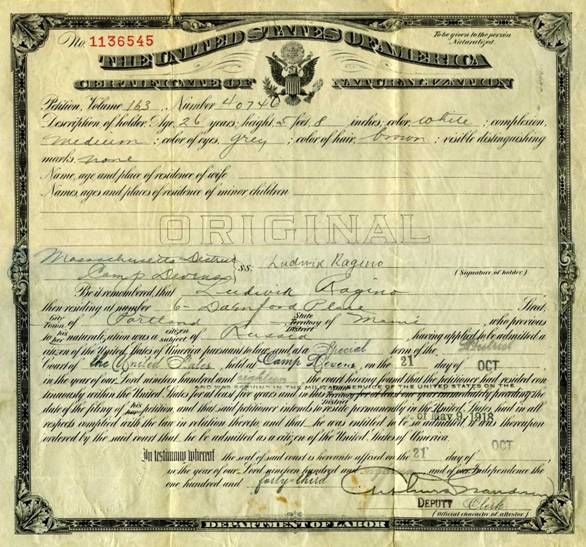 No. 1136545
To be given to the person
Naturalized.
THE UNITED STATES OF AMERICA
CERTIFICATE OF NATURALIZATION
Petition, Volume 163, Number 40746
Description of holder: Age, 26 years; height, 5 feet, 8 inches; color, White; complexion,
Medium; color of eyes, grey; color of hair, brown; visible distinguishing
marks, none
Name, age and place of residence of wife
Names, ages and places of residence of minor children
ORIGINAL
Massachusetts District
Camp Devens
s.s. Ludwik Ragino
(Signature of holder)
Be it remembered, that Ludwik Ragino
then residing at number 6 Place Street,
City Town of Portland State Territory of who previous
to his her naturalization was a citizen subject of Russia having applied to be admitted a
citizen of the United States of America pursuant to law, and at a Special term of the District
Court of the United States, held at Camp Devens, on the 21 day of OCT.
in the year of our Lord nineteen hundred and the court having found that the petitioner had resided con-
tinuously within the United States for at least five years and in this Territory for at least one year immediately preceding
SERVICE OF THE UNITED STATES ON THE
the date of the filing of his petition and that said petitioner intends to reside permanently in the United States, had in all
respects complied with the law in relation thereto, and that he was entitled to be so admitted, it was thereupon
of May 9, 1918
ordered by the said court that he be admitted as a citizen of the United States of America.
In testimony whereof the seal of said court is hereunto affixed on the 21 day of OCT.
in the year of our Lord nineteen hundred and and of our Independence the
one hundred and forty-third
DEPUTY Clerk
(Official character of attestor)
DEPARTMENT OF LABOR